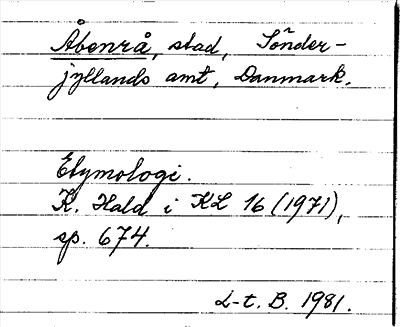 Åbenrå, stad, Sönder-
jyllands amt, Danmark.
Etymologi.
K. Hald i KL 16 (1971),
sp. 674.
L-t. B. 1981.